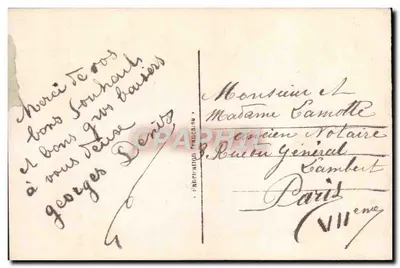 Merci de vos
bons souhaits
et bons gros baisers
à vous deux
georges Denis
Monsieur et
Madame Lamotte
ancien Notaire
3 Rue du Général
Lambert
Paris
(VIIeme)
Fabrication française